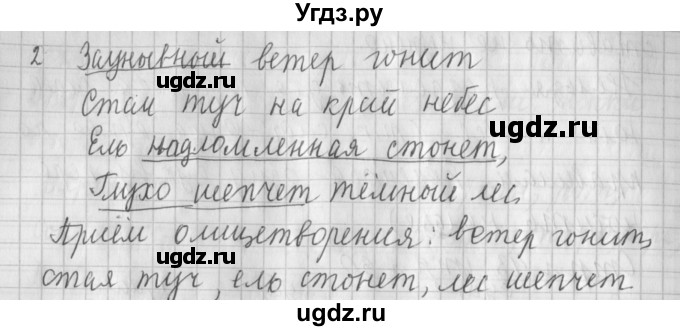 Угдз.ру
2 Заунывный ветер гонит
ugdz.ru ugdz.ru
Стаи туч на край небес
ugdz.ru
Ель надломленная стонет,
ugdz.ru
Глухо шепчет тёмный лес.
ugdz.ru
Приём олицетворения: ветер гонит,
стая туч, ель стонет, лес шепчет
ugdz.ru ugdz.ru
Угдз.ру